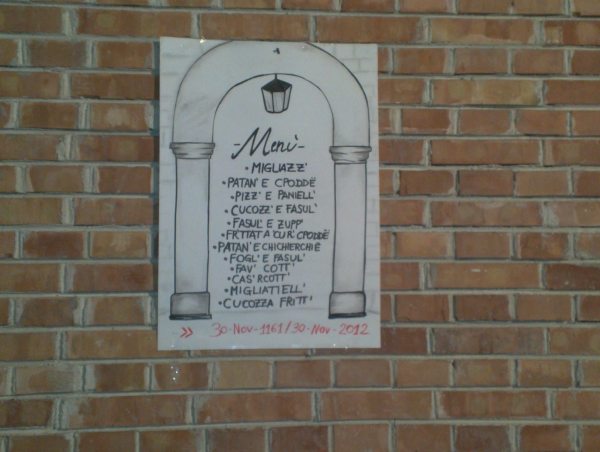 -Menù-
• MIGLIAZZ'
• PATAN' E CPODDË
• PIZZ' E PANIELL'
• CUCOZZ' E FASUL'
• FASUL' E ZUPP'
• FRTTAT A CUR' CPODDË
• PATAN' E CHICHIERCHIË
• FOGL' E FASUL'
• FAV' COTT'
• CAS' RCOTT'
• MIGLIATIELL'
• CUCOZZA FRITT'
>> 30-NOV-1161/30-NOV-2012